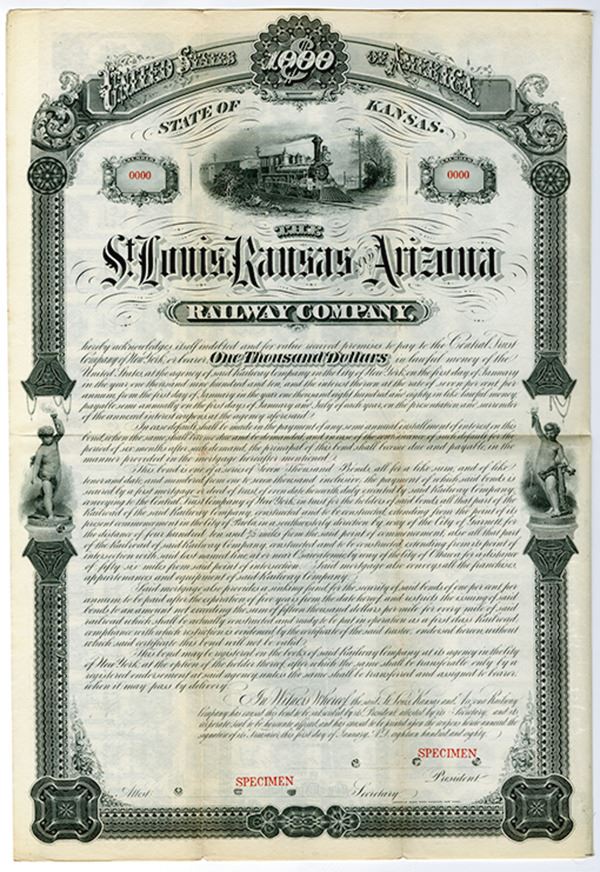 UNITED STATES $1000 OF AMERICA
STATE OF KANSAS.
NUMBER NUMBER
0000 0000
THE
St. Louis, Kansas AND Arizona
RAILWAY COMPANY.
hereby acknowledges itself indebted and for value received promises to pay to the Central Trust
Company of New York, or bearer, One Thousand Dollars in lawful money of the
United States, at the agency of said Railway Company in the City of New York, on the first day of January
in the year one thousand nine hundred and ten, and the interest thereon at the rate of seven per cent. per
annum, from the first day of January in the year one thousand eight hundred and eighty, in like lawful money,
payable semi-annually on the first days of January and July of each year, on the presentation and surrender
of the annexed interest coupons at the agency aforesaid.
In case default shall be made in the payment of any semi-annual installment of interest on this
bond, when the same shall become due and be demanded, and in case of the continuance of such default for the
period of six months after such demand, the principal of this bond shall become due and payable, in the
manner provided in the mortgage hereinafter mentioned.
This bond is one of a series of Seven Thousand Bonds, all for a like sum, and of like
tenor and date, and numbered from one to seven thousand inclusive, the payment of which said bonds is
secured by a first mortgage or deed of trust, of even date herewith, duly executed by said Railway Company,
conveying to the Central Trust Company of New York, in trust for the holders of said bonds, all that part of the
Railroad of the said Railway Company, constructed and to be constructed, extending from the point of its
present commencement in the City of Paola, in a southwesterly direction by way of the City of Garnett, for
the distance of four hundred ten and miles from the said point of commencement, also all that part
of the Railroad of said Railway Company, constructed and to be constructed, extending from its point of
intersection with said last named line, at or near Osawatomie, by way of the City of Ottawa, for a distance
of fifty six miles from said point of intersection. Said mortgage also conveys all the franchises,
appurtenances and equipment of said Railway Company.
Said mortgage also provides a sinking fund for the security of said bonds of one per cent per
annum to be paid after the expiration of five years from the date hereof, and restricts the issuing of said
bonds to an amount not exceeding the sum of fifteen thousand dollars per mile for every mile of said
railroad which shall be actually constructed and ready to be put in operation as a first class Railroad,
compliance with which restriction is evidenced by the certificate of the said trustee, endorsed hereon, without
which said certificate this bond will not be valid.
This bond may be registered on the books of said Railway Company at its agency in the City
of New York, at the option of the holder thereof, after which the same shall be transferable only by a
registered endorsement at said agency, unless the same shall be transferred and assigned to bearer,
when it may pass by delivery.
In Witness Whereof, the said St. Louis, Kansas and Arizona Railway
Company has caused this bond to be subscribed by its President, attested by its Secretary, and its
corporate seal to be hereunto affixed, and has caused to be printed upon the coupons hereto annexed the
signature of its Treasurer, this first day of January, A.D. eighteen hundred and eighty.
SPECIMEN
President
SPECIMEN
Attest Secretary